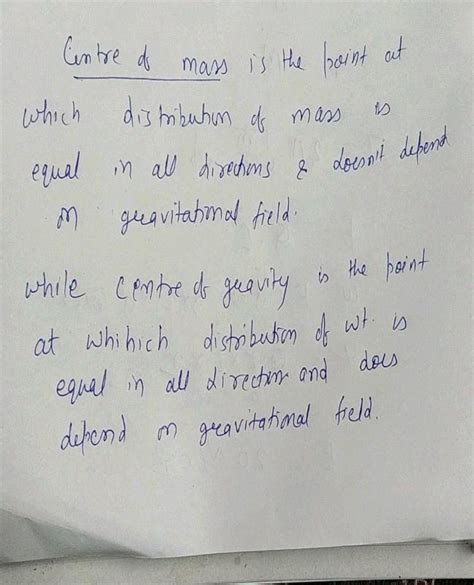 Centre of mass is the point at
which distribution of mass is
equal in all directions & doesn't depend
on gravitational field.
while centre of gravity is the point
at whihich distribution of wt. is
equal in all direction and does
depend on gravitational field.